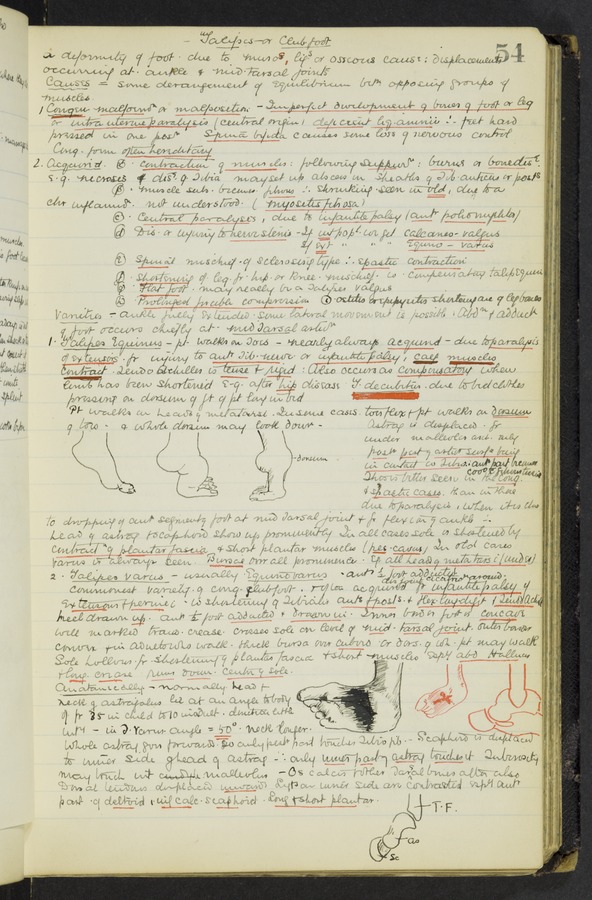 54
Talipes or Clubfoot
a deformity of foot due to muscr, ligs or osseous cause : displacements
occurring at ankle & mid-tarsal joints
Causes = some derangement of equilibrium betn opposing groups of
muscles
1. Congen - malformn or malposition - Imperfect development of bones of foot or leg
or intra uterine paralysis (central origin) deficient lig. amnii : feet hard
pressed in one posn Spina bifida causes some loss of nervous control
Cong. form often hereditary
2. Acquired. (a) contraction of muscles : following suppurn : burns or bone dise
e.g. necrosis of Tibia may set up abscess in sheaths of Tib anticus or post
(b) muscle subs. becomes fibrous : shrinking seen in old, due to a
chr inflammn not understood. (myositis fibrosa)
(c) Central paralysis, due to infantile palsy (ant poliomyelitis)
(d) Dis. or injury to nerve stems - If int popl. we get calcaneo-valgus
If ext " " " Equino-varus
(e) Spinal mischief of sclerosing type : spastic contraction
(f) Shortening of leg fr hip or knee mischief is compensatory talip Equin
(g) Flat foot may really be a Talipes valgus
(h) Prolonged forcible compression
Varieties - ankle fully extended some lateral movement is possible. Abdn & adduct
of foot occurs chiefly at mid Tarsal artin
1. Talipes Equinus - pt walks on toes - nearly always acquired - due to paralysis
of extensors fr injury to ant tib nerve or infantile palsy, calf muscles
contract. Tendo Achillis is tense & rigid : Also occurs as compensatory when
limb has been shortened e.g. after hip disease T. decubitus due to bedclothes
pressing on dorsum of ft of pt lying in bed
Pt walks on heads of metatarse. In some cases toes flex & pt walks on dorsum
of toes - & whole dorsum may look down -
dorsum
Astrag is displaced fr
under malleolus and only
post part of artic surf being
in contact w Tibia : ant part becomes
Shows better seen in the cong.
& spastic cases than in those
due to paralysis, when it is due
to dropping of ant segment of foot at mid tarsal joint & fr flexion of ankle ∴
head of astrag & scaphoid show up prominently. In all cases sole is shortened by
contractn of plantar fascia & short plantar muscles (pes-cavus) In old cases
varus is always seen. Bursae over all prominence
2. Talipes varus - usually Equino varus - ant ½ foot adducted
commonest variety of cong clubfoot - often acquired fr infantile palsy of
Extensors & peronei is shortening of Tibialis ant & post & flex long digit & Tendo Achill
heel drawn up. ant ½ foot adducted & drawn in. Inner border foot is concave
well marked trans. crease crosses sole on level of mid-tarsal joint. outer border
convex & in adults who walk thick bursa over cuboid or dors. of wh. pt may walk
Sole hollow fr shortening of plantar fascia & short muscles esply abd Hallucis
& long crease runs down centre of sole
Anatomically - normally head &
neck of astragalus lie at an angle to body
of fr 35 in child to 10 in adult - direction little
in T. Varus angle = 50° neck longer.
Whole astrag goes forwards so only post part touches Tibia pb. - Scaphoid is displaced
to inner side of head of astrag - ∴ only inner part of astrag touches it Tuberosity
may touch int malleolus - Os calcis & other tarsal bones alter also
Dorsal tendons displaced inward Ligs on inner side are contracted esply ant
part of deltoid, inf calc-scaphoid. long & short plantar.
T.F.
as
sc